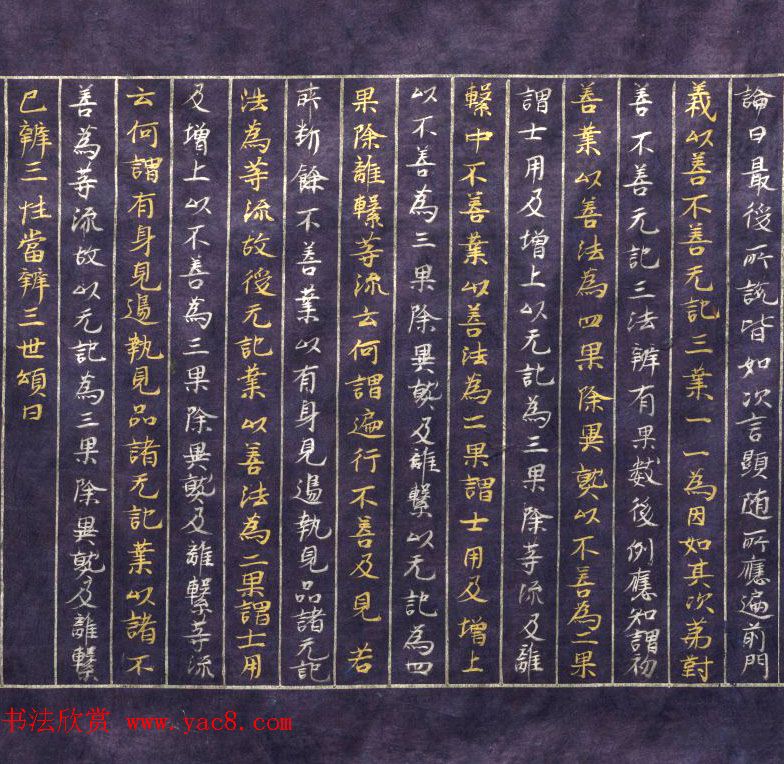 論曰最後所說皆如次言顯随所應遍前門
義以善不善无記三業一一為因如其次第對
善不善无記三法辨有果數後例應知謂初
善業以善法為四果除異熟以不善為二果
謂士用及增上以无記為三果除等流及離
繫中不善業以善法為二果謂士用及增上
以不善為三果除異熟及離繫以无記為四
果除離繫等流云何謂遍行不善及見若
所断餘不善業以有身見邊執見品諸无記
法為等流故後无記業以善法為二果謂士用
及增上以不善為三果除異熟及離繫等流
云何謂有身見邊執見品諸无記業以諸不
善為等流故以无記為三果除異熟及離繫
已辨三性當辨三世頌曰
书法欣赏 www.yac8.com